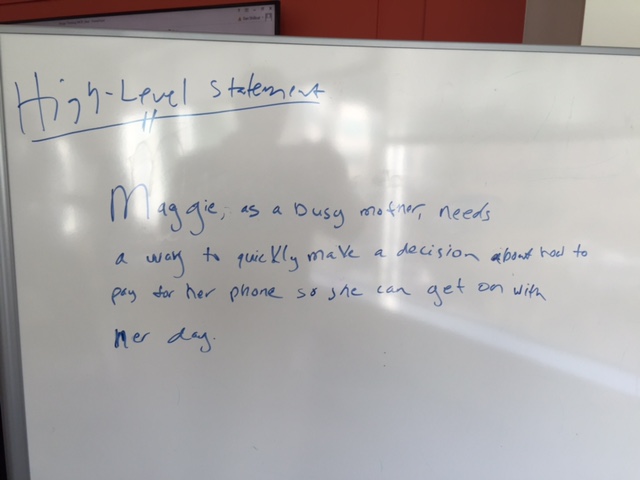 High-Level Statement
Maggie, as a busy mother, needs
a way to quickly make a decision about how to
pay for her phone so she can get on with
her day.